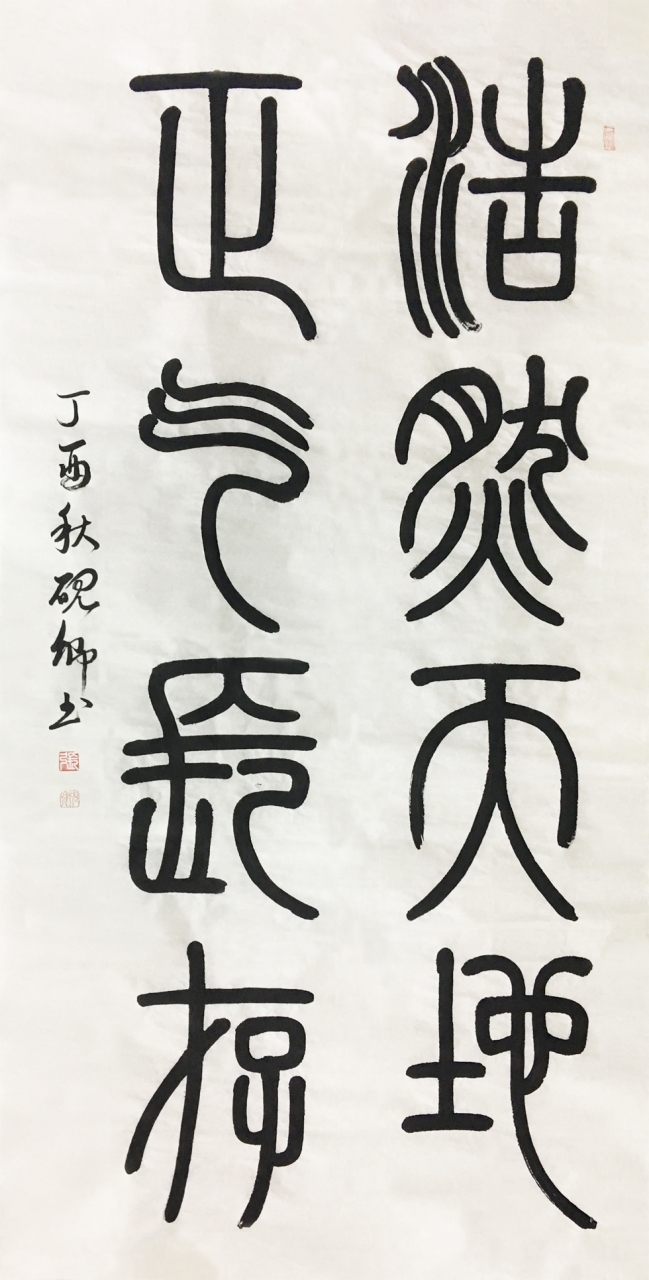 浩然天地
正气長存
丁酉秋砚卿书